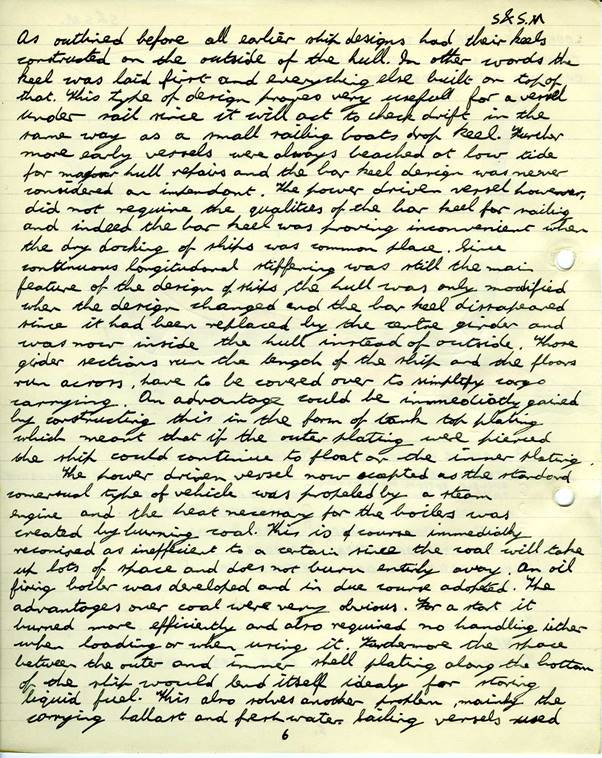 S&S.M
As outlined before all earlier ship designs had their keels
constructed on the outside of the hull. In other words the
keel was laid first and everything else built on top of
that. This type of design proves very usefull for a vessel
under sail since it will act to check drift in the
same way as a small sailing boats drop keel. Further
more early vessels were always beached at low tide
for major hull repairs and the bar keel design was never
considered an
The power driven vessel however,
did not require the qualities of the bar keel for sailing
and indeed the bar keel was proving inconvenient when
the dry docking of ships was common place. Since
continuous longitudonal stiffering was still the main
feature of the design of ships, the hull was only modified
when the design changed and the bar keel dissapeared
since it had been replaced by the centre girder and
was now inside the hull instead of outside. Those
girder sections run the length of the ship and the floors
run across, have to be covered over to simplify cargo
carrying. An advantage could be immediatly gained
by constructing this in the form of tank top plating
which meant that if the outer plating were pierced
the ship could continue to float on the inner plating.
The power driven vessel now acepted as the standard
comersual type of vehicle was propeled by a steam
engine and the heat necessary for the boiles was
created by burning coal. This is of course immediatly
reconised as inefficient to a certain since the coal will take
up lots of space and does not burn entirly away. An oil
firing boiler was developed and in due course adopted. The
advantages over coal were very obvious. For a start it
burned more efficiently and also required no handling either
when loading or when using it. Furthermore the space
between the outer and inner shell plating along the bottom
of the ship would lend itself idealy for storing
liquid fuel. This also solves another problem, mainly the
carrying ballast and fresh water. Sailing vessels used
6